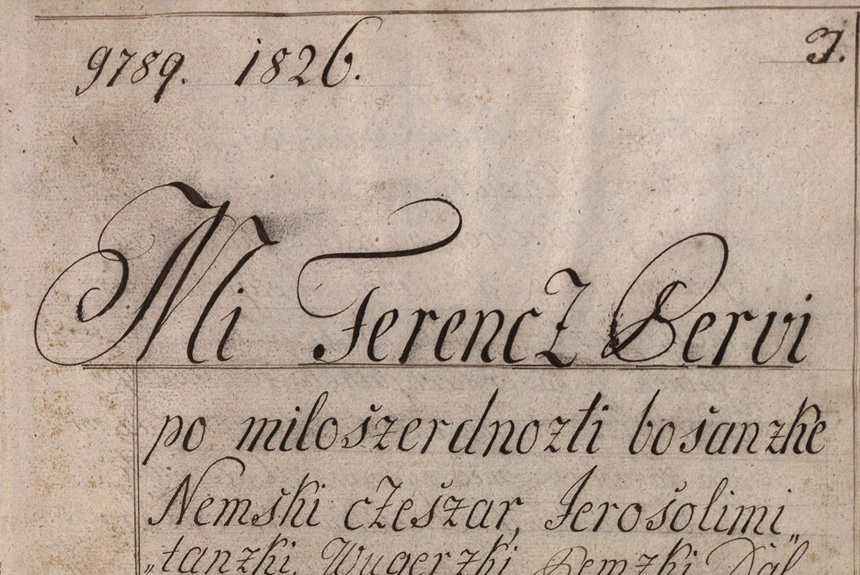 9789. 1826. 3.
Mi Ferencz Pervi
po milošzerdnozti bosanzke
Nemški czešzar, Jerošolimi„
„tanzki, Wugerzki, Pemzki, Dal